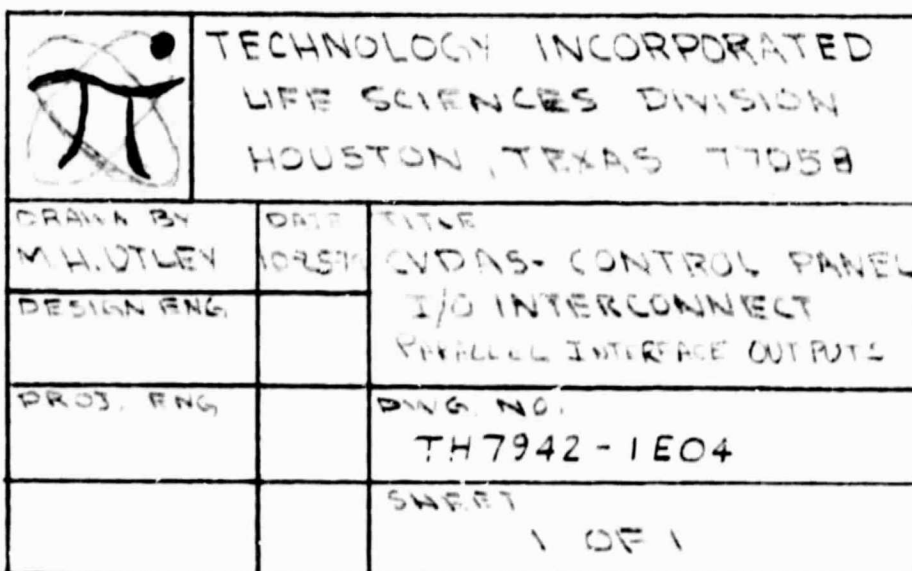 TECHNOLOGY INCORPORATED
LIFE SCIENCES DIVISION
HOUSTON, TEXAS 77058
DRAWN BY
M.H. UTLEY
DATE
TITLE
CVDAS- CONTROL PANEL
I/O INTERCONNECT
PARALLEL INTERFACE OUTPUTS
DESIGN ENG
PROJ. ENG
DWG. NO.
TH7942-1E04
SHEET
1 OF 1